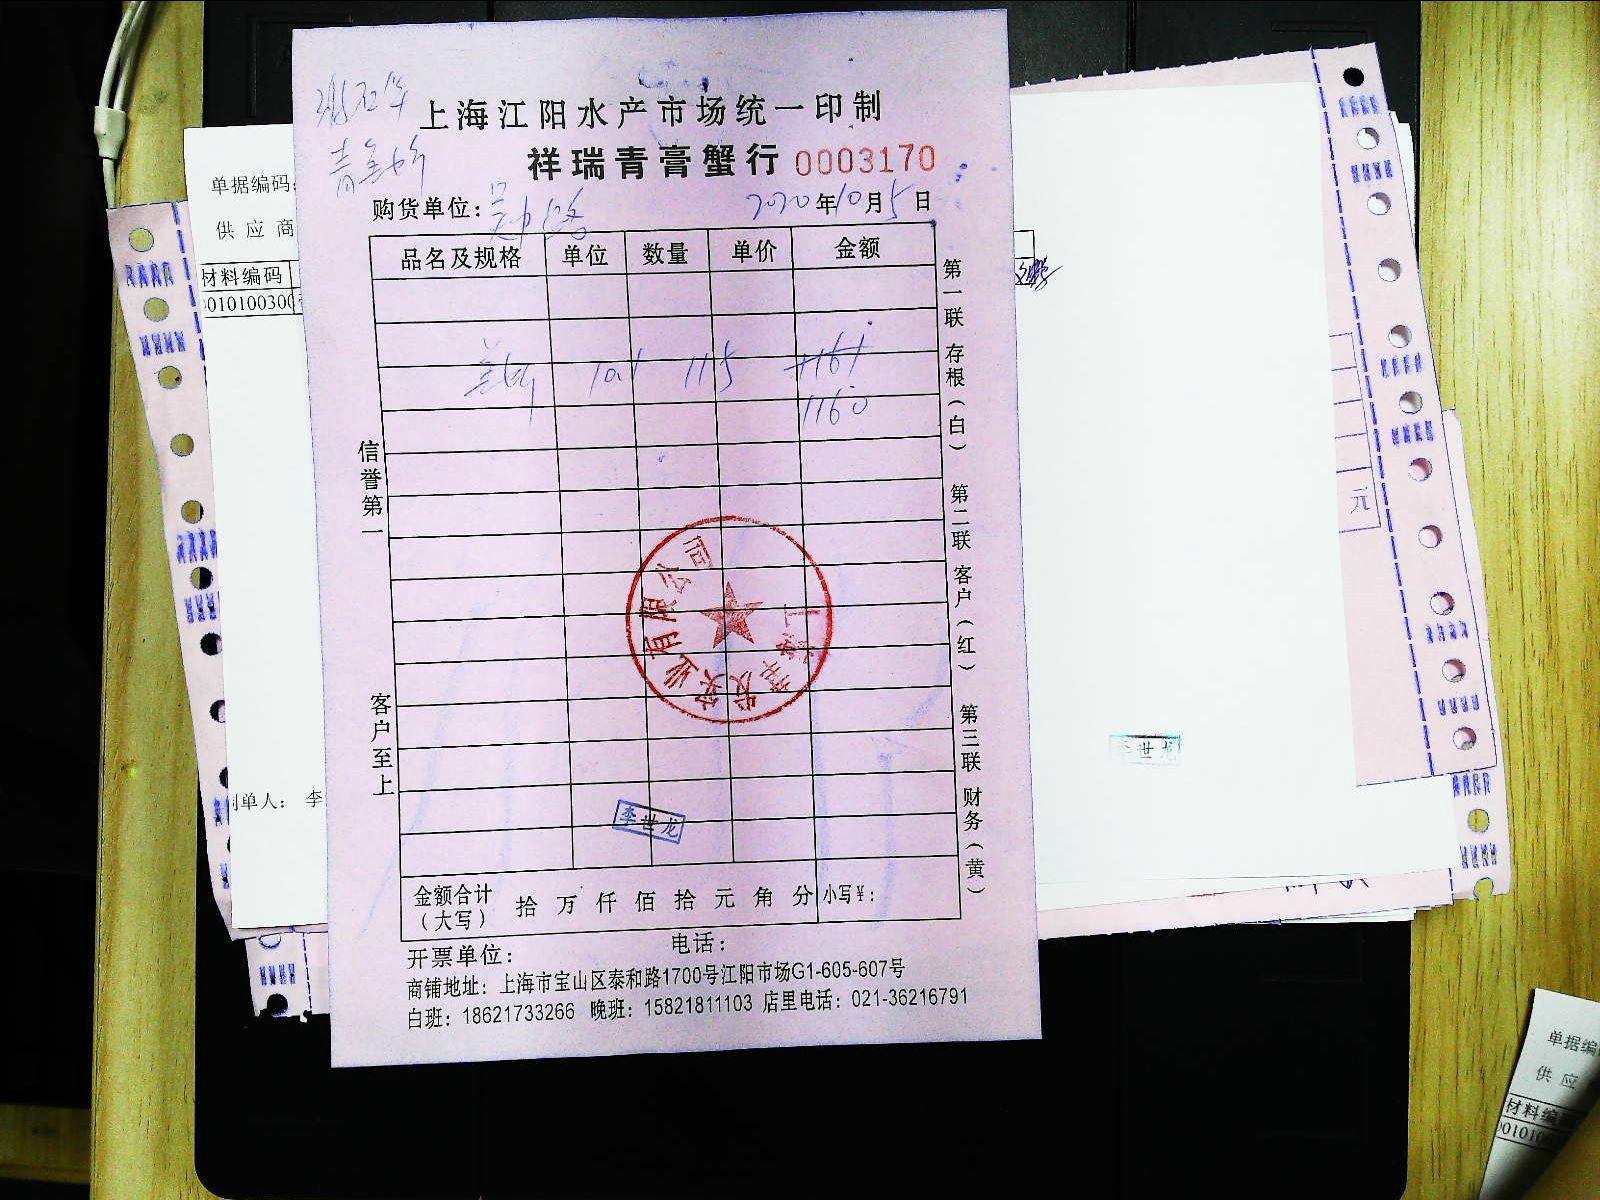 上海江阳水产市场统一印制
祥瑞青膏蟹行 0003170
购货单位: 2020年10月5日
品名及规格 单位 数量 单价 金额
10.1 115 1161
1160
信誉第一
客户至上
第一联 存根(白)
第二联 客户(红)
第三联 财务(黄)
发实业有限公司
李世龙
金额合计(大写) 拾 万 仟 佰 拾 元 角 分 小写¥:
开票单位: 电话:
商铺地址: 上海市宝山区泰和路1700号江阳市场G1-605-607号
白班: 18621733266 晚班: 15821811103 店里电话: 021-36216791
单据编码:
供应商
材料编码
010100300
制单人: 李
李世龙
元
单据编
供应
材料编